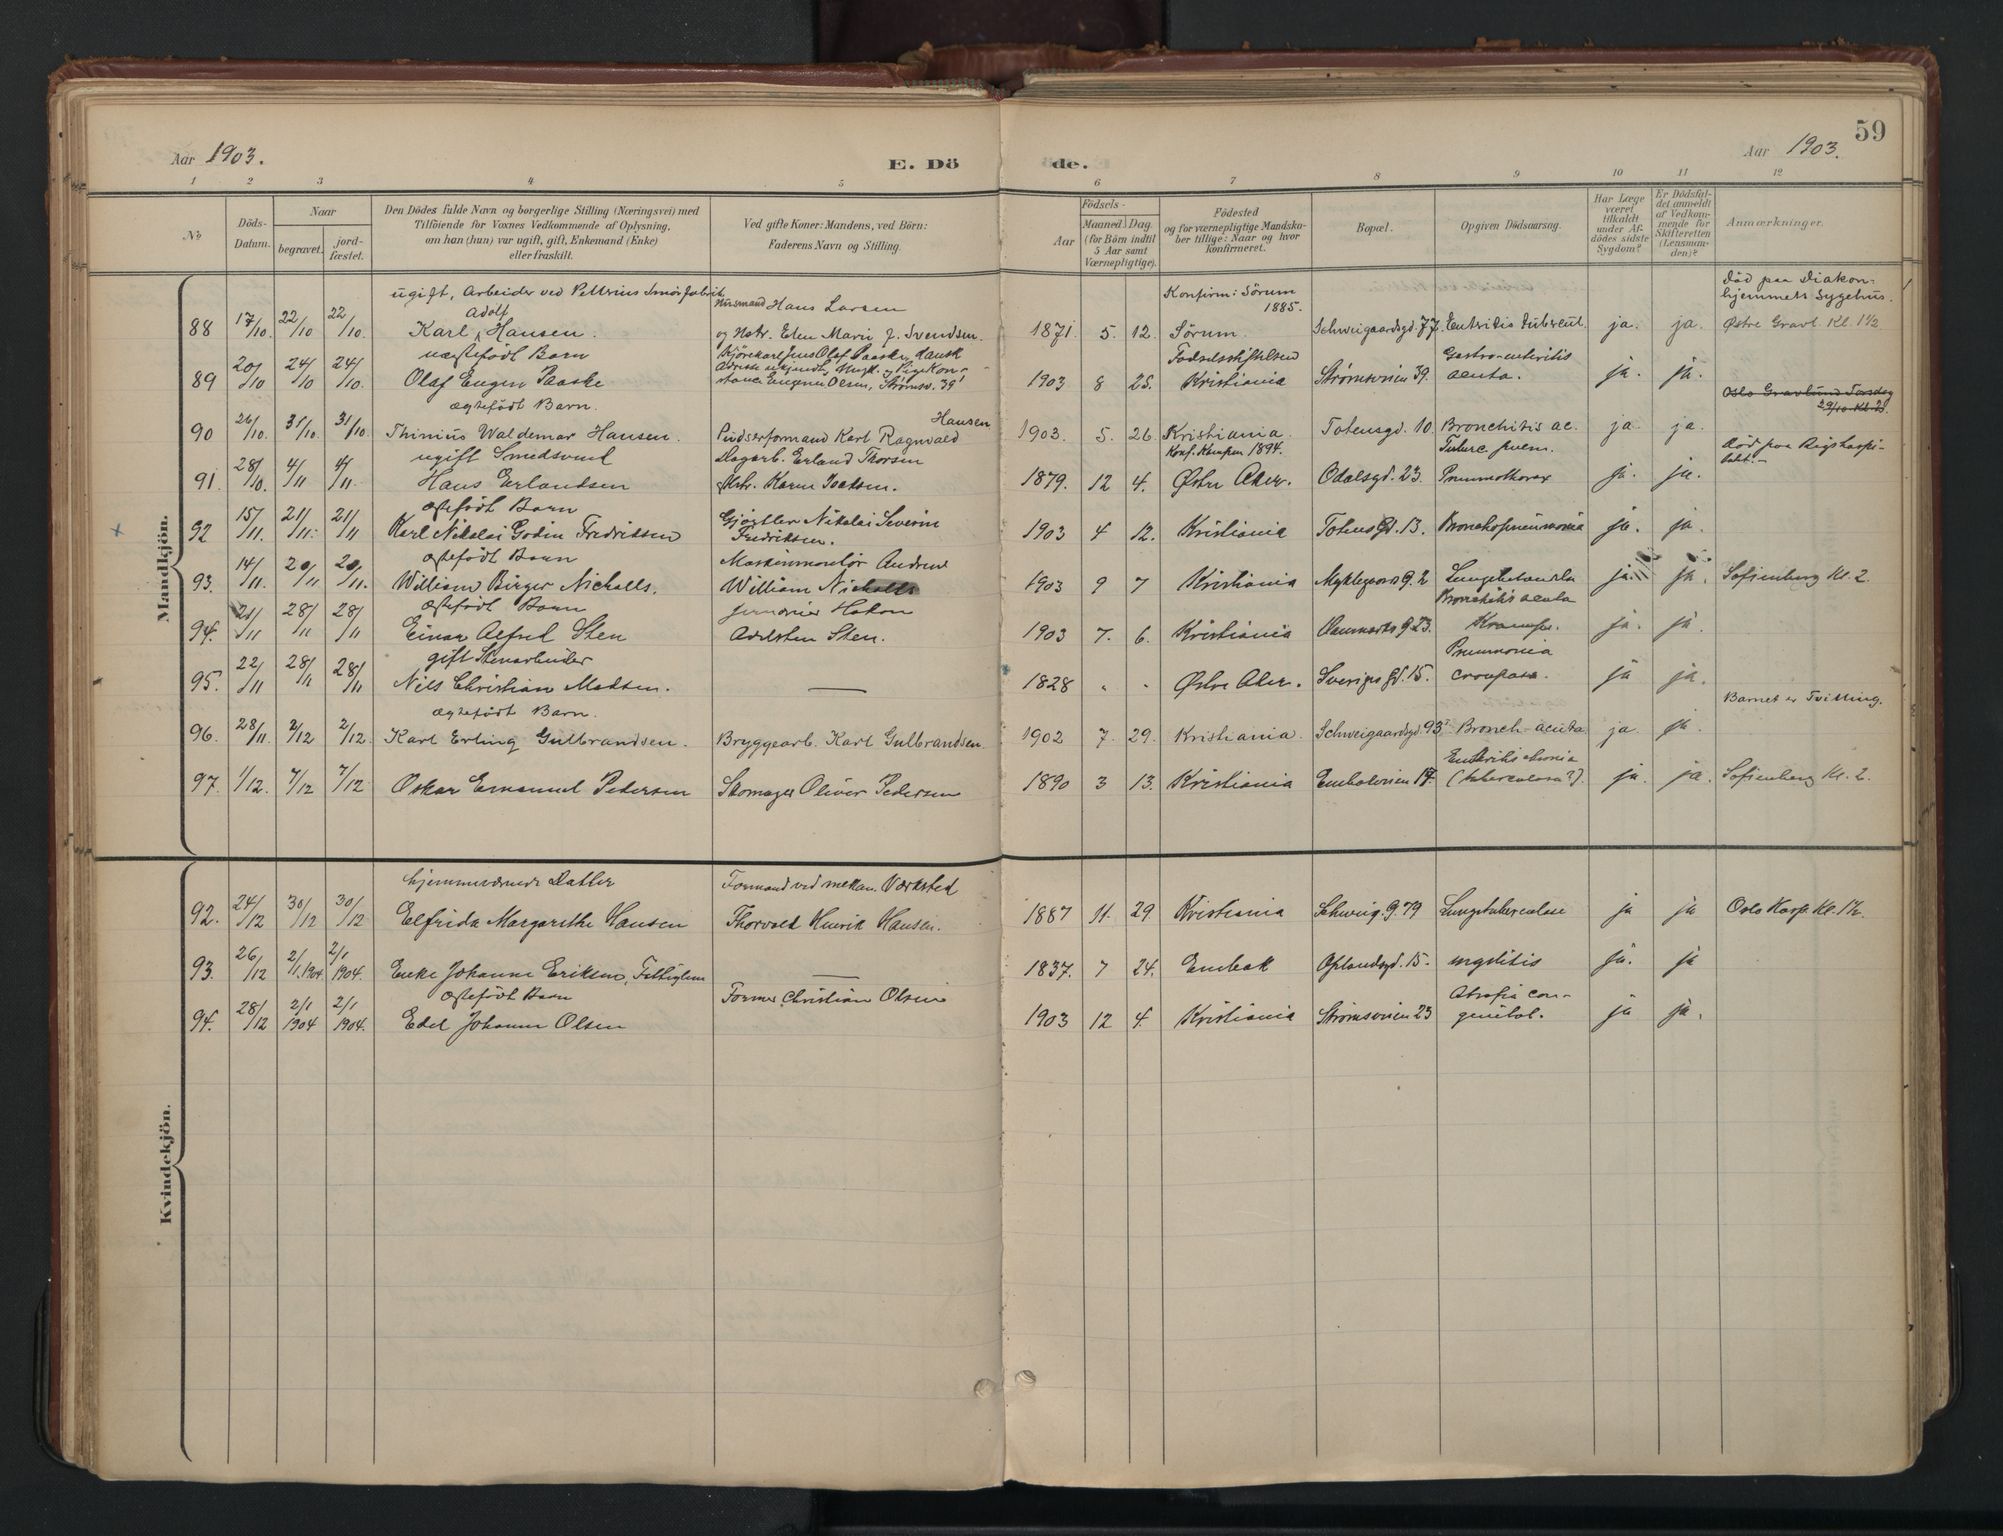 59
Aar 1903.
E. Döde.
Aar 1903.
1 2 3 4 5 6 7 8 9 10 11 12
No
Döds-Datum.
Naar
begravet.
jord-fæstet.
Den Dödes fulde Navn og borgerlige Stilling (Næringsvei) med
Tilföiende for Voxnes Vedkommende af Oplysning,
om han (hun) var ugift, gift, Enkemand (Enke)
eller fraskilt.
Ved gifte Koner: Mandens, ved Börn:
Faderens Navn og Stilling.
Födsels-
Aar
Maaned. Dag.
(for Börn indtil
5 Aar samt
Værnepligtige).
Födested
og for værnepligtige Mandska-
ber tillige: Naar og hvor
konfirmeret.
Bopæl.
Opgiven Dödsaarsag.
Har Læge
været
tilkaldt
under Af-
dödes sidste
Sygdom?
Er Dödsfal-
det anmeldt
af Vedkom-
mende for
Skifteretten
(Lensman-
den)?
Anmærkninger.
Mandkjön.
ugift, Arbeider ved Pellerins Smörfabrik Husmand Hans Larsen Konfirm: Sörum 1885. Död paa Diakon-
hjemmets Sygehus.
Adolf
88 17/10. 22/10 22/10. Karl Hansen. og Hstr. Elen Marie J. Svendsen. 1871. 5. 12. Sörum. Schweigaardsgd. 77. Entritis Tubercul. ja. ja. Østre Gravl. Kl. 1½
uægtefödt Barn Kjörekarl Jens Olaf Paaske, dansk Födselsstiftelsen Gastro-enteritis
89 20/10 24/10 24/10. Olaf Eugen Paaske Adresse ukjendt, Ungk. og Pige Kon-
stance Eugenie Olsen, Strömsv. 39 1903 8 25. Kristiania Strömsveien 39. acuta. ja. ja.
Oslo Gravlund Torsdag
29/10 Kl. 2.
ægtefödt Barn. Hansen
90 26/10. 31/10. 31/10. Thinius Waldemar Hansen. Pudserformand Karl Ragnvald 1903. 5. 26. Kristiania. Totensgd. 10. Bronchitis ac. ja. ja.
ugift Smedsvend Dagarb. Erland Thorsen Konf. Kampen 1894. Tuberc. pulm. Död paa Rigshospi-
talet.-
91. 28/10. 4/11 4/11. Hans Erlandsen Hstr. Karen 1879. 12 4. Østre Aker. Odalsgd. 23. Pneumothorax ja. ja.
ægtefödt Barn Gjørtler Nikolai Severin
92 15/11. 21/11. 21/11 Karl Nikolai Godin Fredriksen Fredriksen. 1903 4 12. Kristiania Totensgd. 13. Bronchopneumonia ja. ja.
ægtefödt Barn Maskinmontör Andrew
93. 14/11. 20/11 20/11. William Birger Nicholls. William Nicholls 1903 9 7 Kristiania Myklegaards g. 2 ja. ja. Sofienberg Kl. 2.
ægtefödt Barn Hakon Bronchitis acuta
94. 21/11 28/11 28/11 Einar Alfred Sten Adelsten Sten. 1903 7. 6. Kristiania Danmarks g. 23. Krampe. ja. ja.
gift Stenarbeider Pneumonia
95. 22/11 28/11 28/11 Nils Christian Madsen. — 1828 " " Østre Aker. Sverigs gd. 15. crouposa. ja ja.
ægtefödt Barn. Barnet er Tvilling.
96. 28/11. 2/12 2/12. Karl Erling Gulbrandsen. Bryggearb. Karl Gulbrandsen 1902 7. 29. Kristiania. Schweigaardsgd. 93 Bronch. acuta ja. ja.
Enteritis chronia
97. 1/12. 7/12 7/12. Oskar Emanuel Pedersen Skomager Oliver Pedersen 1890 3 13. Kristiania Enebakveien 17. (tuberculosa?). ja. ja. Sofienberg Kl. 2.
Kvindekjön.
hjemmeværende Datter Formand ved mekan. Værksted
92. 24/12 30/12 30/12 Elfrida Margarethe Hansen Thorvald Henrik Hansen. 1887 11. 29. Kristiania Schweig. g. 79 Lungetuberculose ja ja Oslo Kap. Kl. 1½.
93. 26/12 2/1 1904 2/1 1904. Enke Johanne Eriksen, Fattiglem — 1837. 7 24. Enebak Oplandsgd. 15. myelitis ja. ja
ægtefödt Barn Former Christian Olsen Atrofia con-
94. 28/12 2/1 1904 2/1 1904. Edel Johanne Olsen 1903 12 4. Kristiania Strömsveien 23 genital. ja ja.